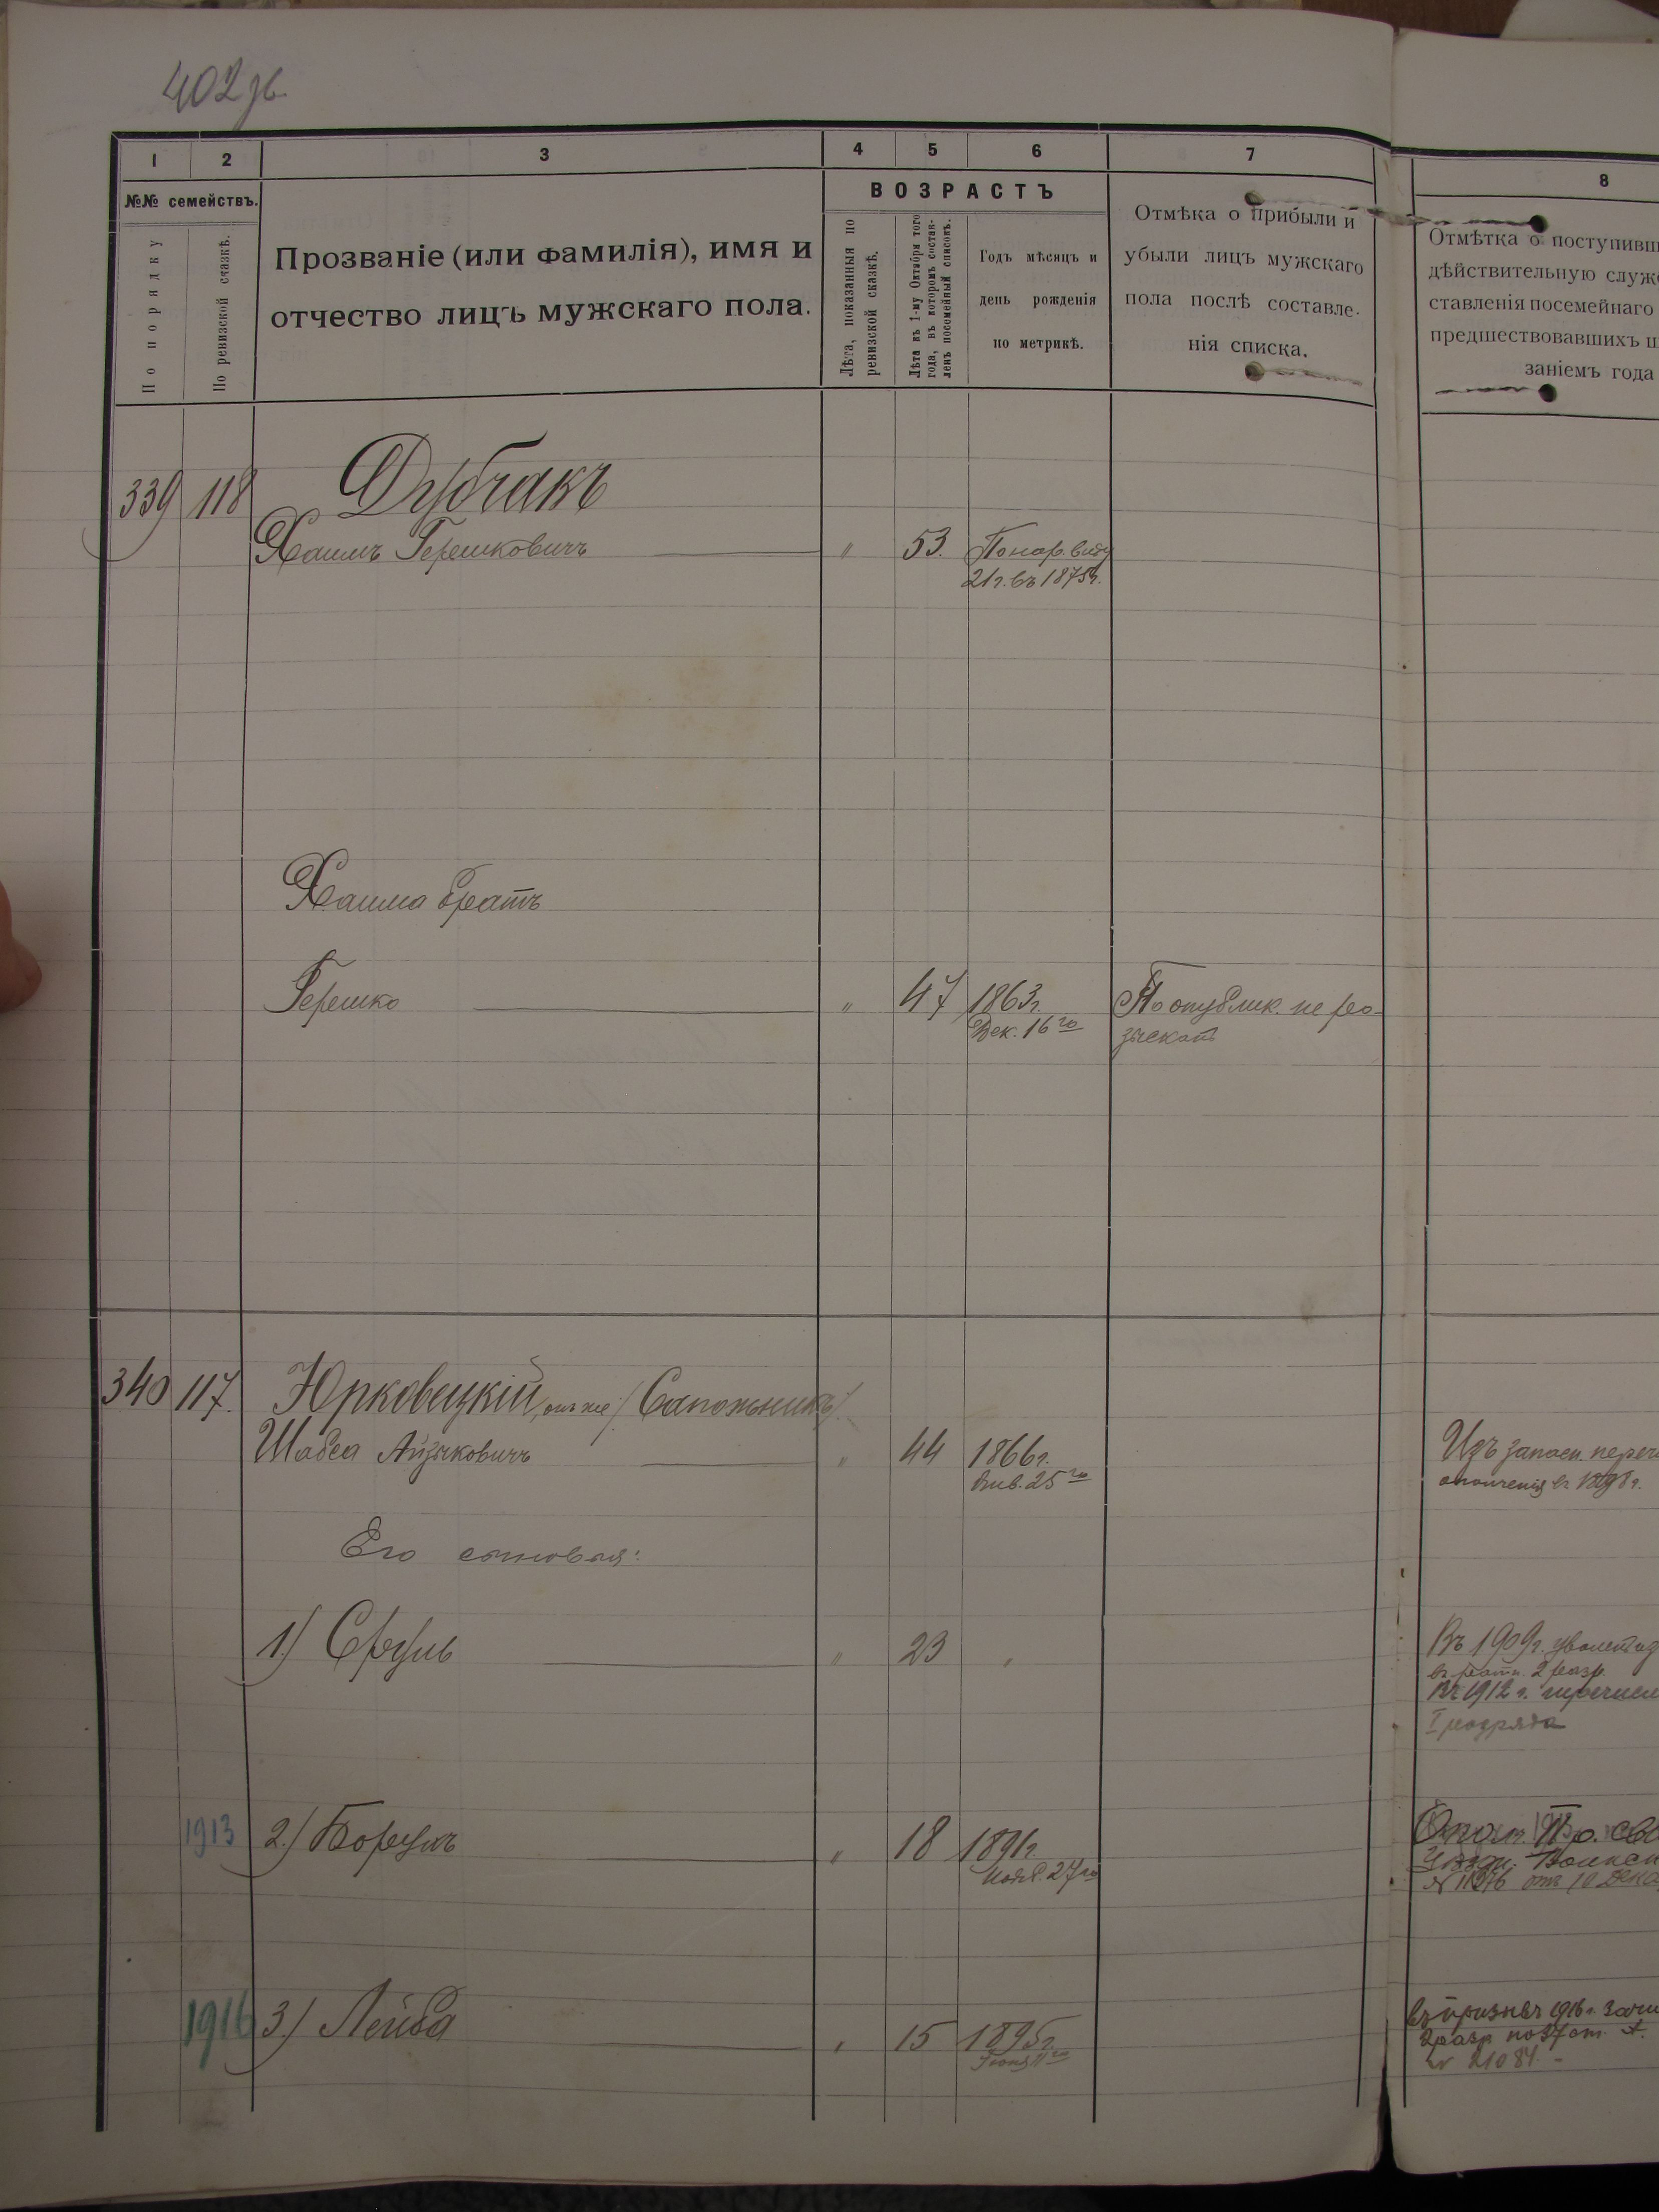 402 зв.
1 2 3 4 5 6 7 8
№№ семействъ.
По порядку
По ревизской сказкѣ.
Прозваніе (или фамилія), имя и
отчество лицъ мужскаго пола.
ВОЗРАСТЪ
Лѣта, показанныя по
ревизской сказкѣ.
Лѣта къ 1-му Октября того
года, въ которомъ состав-
ленъ посемейный списокъ.
Годъ мѣсяцъ и
день рожденія
по метрикѣ.
Отмѣка о прибыли и
убыли лицъ мужскаго
пола послѣ составле-
нія списка.
Отмѣтка о поступивш
дѣйствительную служ
ставленія посемейнаго
предшествовавшихъ
заніемъ года
339 118 Дубчакъ
Хаимъ Герешковичъ " 53. По нар. виду
21 г. въ 1875 г.
Хаима братъ
Герешко " 47 1863 г. По опублик. не ра-
Дек. 16го зысканъ
340 117. Юрковецкій, онъ же /Сапожникъ/
Шабса Айзыковичъ " 44 1866 г. Изъ запаса переч
Янв. 25го ополченія въ 1898 г.
Его сыновья:
1) Сруль " 23 " Въ 1909 г. уволенъ
въ ратн. 2 разр.
Въ 1912 г. перечисл
I разряда
1913 2.) Борухъ " 18 1891 г. Опол. II р.
Нояб. 27го
1916 3) Лейба " 15 1895 г. въ призывъ 1916 г. зачи
Іюня 11го 2 разр по 37 от.
№ 21084. -